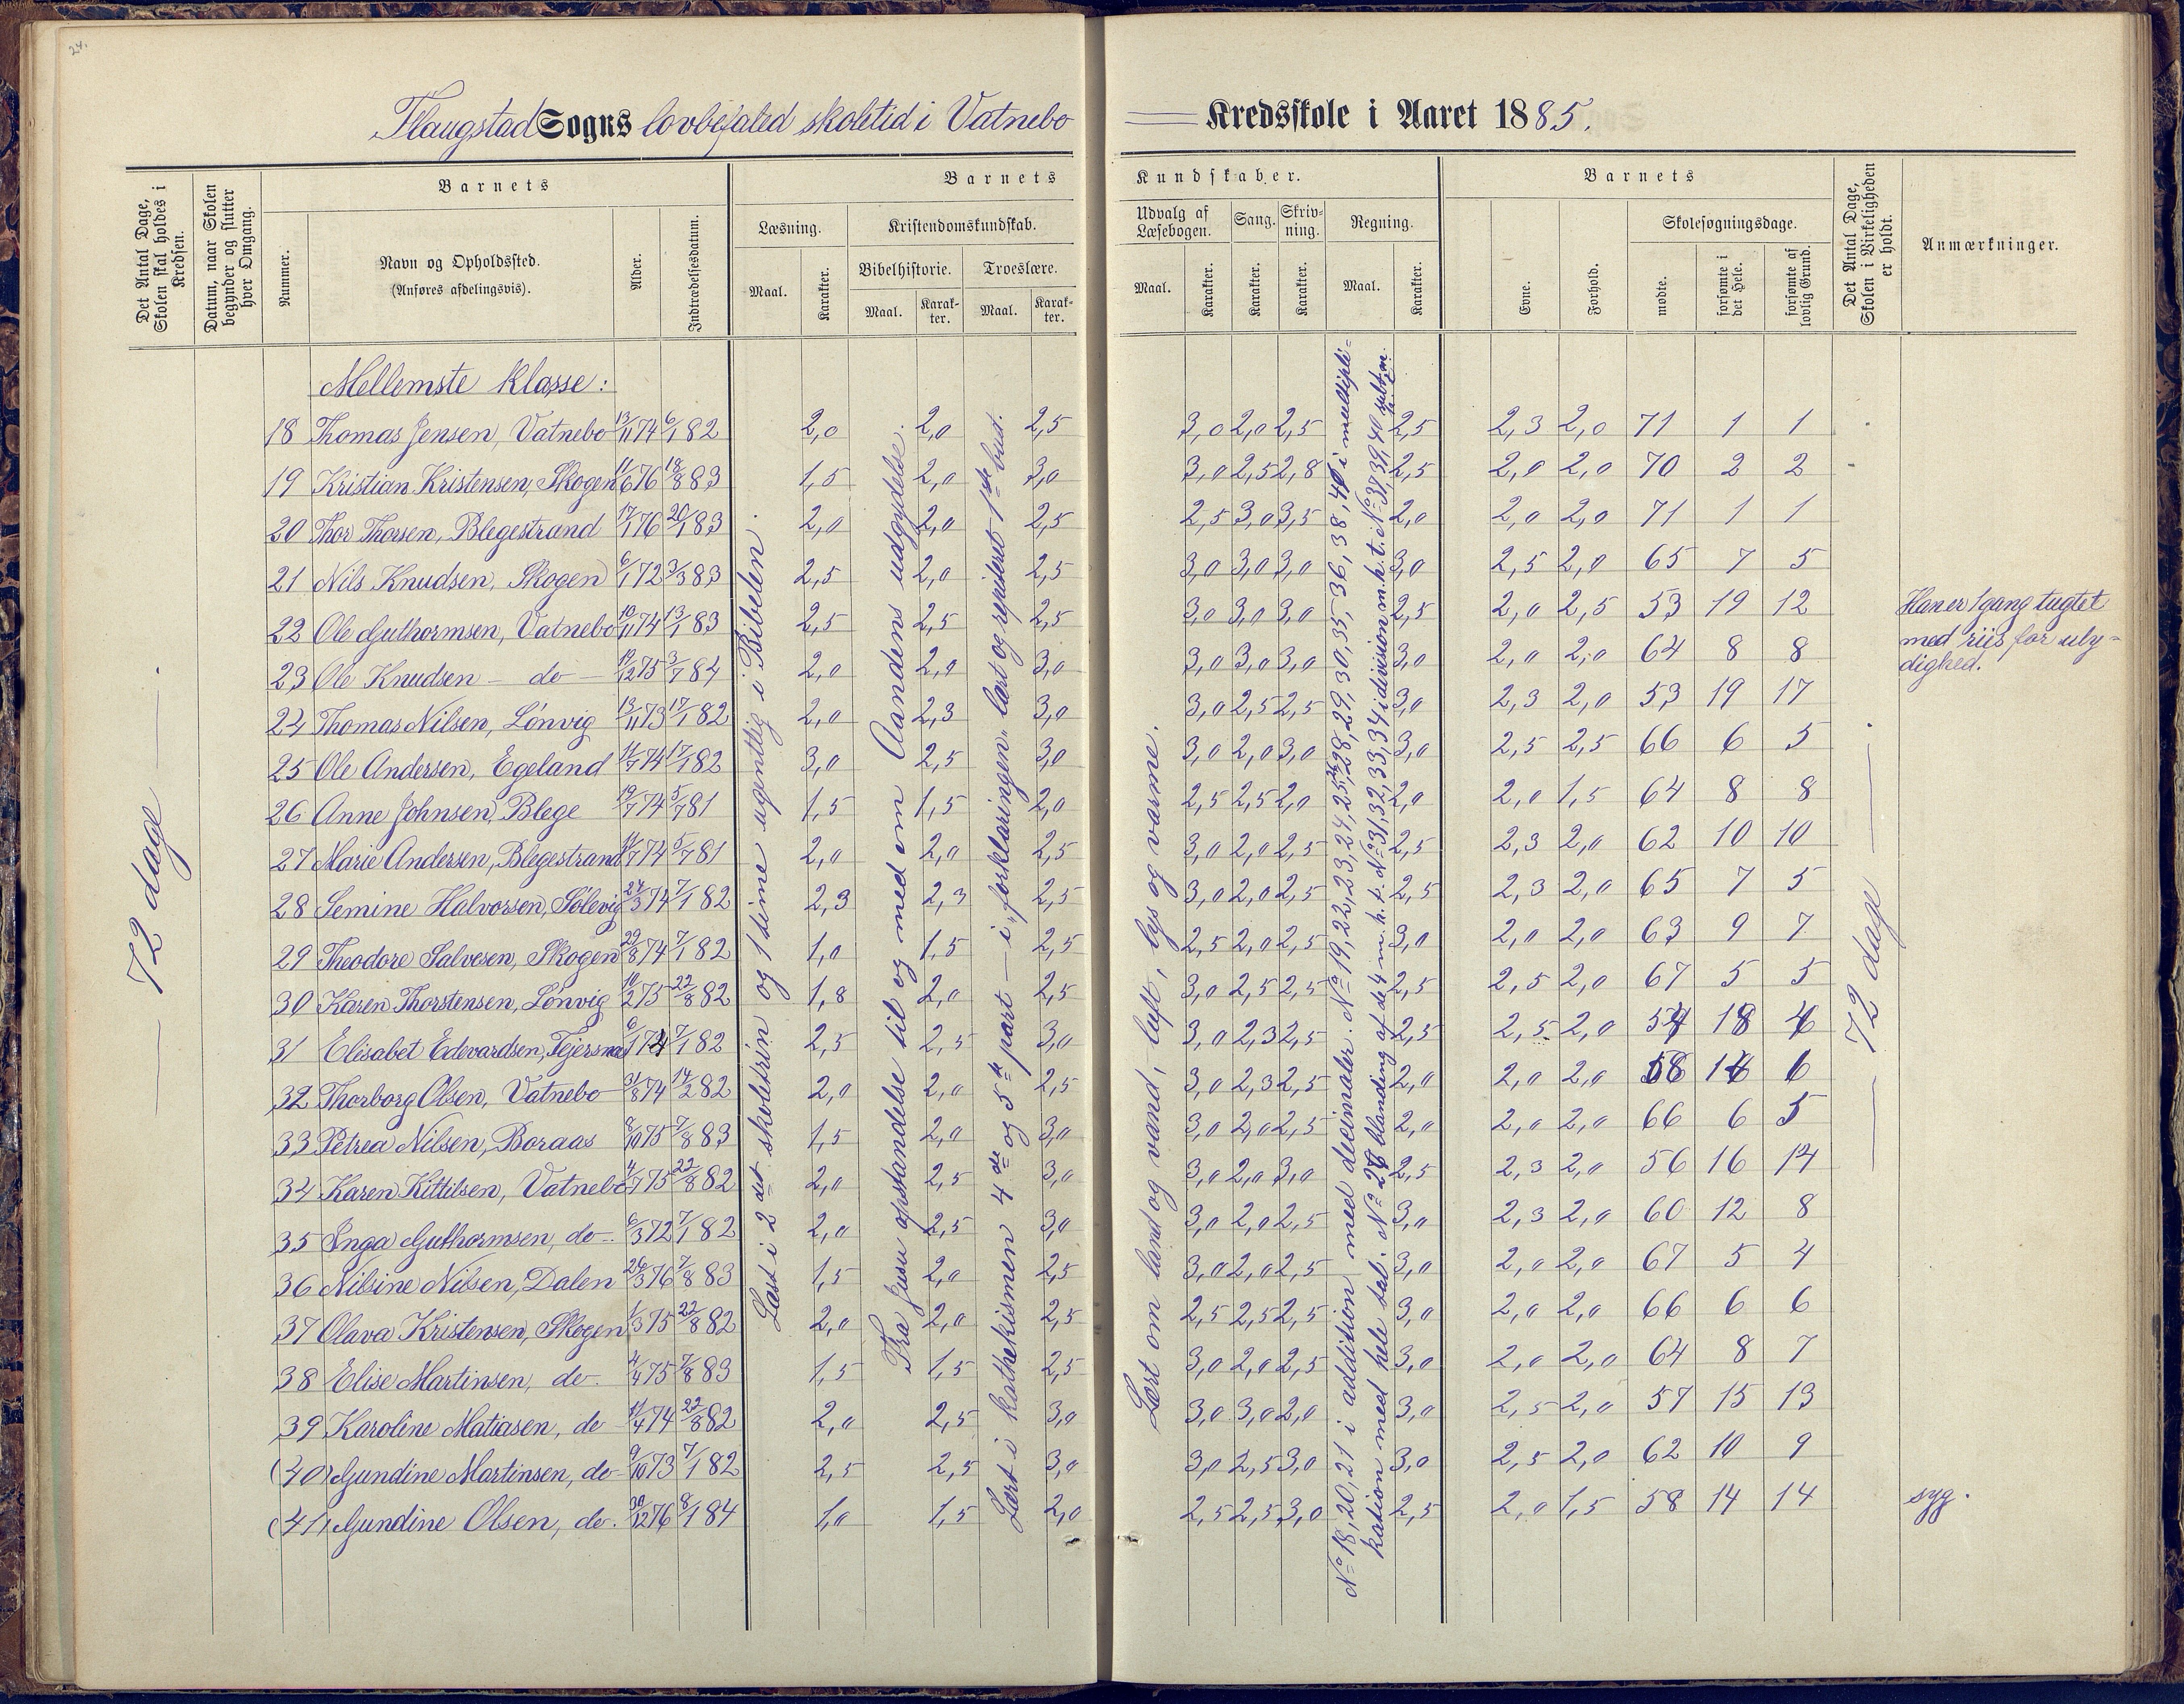 24.
Flaugstad Sogns lovbefaled skoletid i Vatnebo Kredsskole i Aaret 1885.
Det Antal Dage, Skolen skal holdes i Kredsen.
Datum, naar Skolen begynder og slutter hver Omgang.
Barnets
Nummer.
Navn og Opholdssted.
(Anføres afdelingsvis).
Alder.
Indtrædelsesdatum.
Barnets Kundskaber.
Læsning.
Maal.
Karakter.
Kristendomskundskab.
Bibelhistorie.
Maal.
Karakter.
Troeslære.
Maal.
Karakter.
Udvalg af Læsebogen.
Maal.
Karakter.
Sang.
Karakter.
Skrivning.
Karakter.
Regning.
Maal.
Karakter.
Barnets
Evne.
Forhold.
Skolesøgningsdage.
mødte.
forsømte i det Hele.
forsømte af lovlig Grund.
Det Antal Dage, Skolen i Virkeligheden er holdt.
Anmærkninger.
Mellemste klasse:
18 Thomas Jensen, Vatnebo 13/11 74 6/1 82 2,0 2,0 2,5 3,0 2,0 2,5 2,5 2,3 2,0 71 1 1
19 Kristian Kristensen, Skogen 11/6 76 18/8 83 1,5 2,0 3,0 3,0 2,5 2,8 2,5 2,0 2,0 70 2 2
20 Thor Thorsen, Blegestrand 17/1 76 20/1 83 2,0 2,0 2,5 2,5 3,0 3,5 2,0 2,0 2,0 71 1 1
21 Nils Knudsen, Skogen 6/1 72 3/3 83 2,5 2,0 2,5 3,0 3,0 3,0 3,0 2,5 2,0 65 7 5
22 Ole Guthormsen, Vatnebo 10/11 74 13/1 83 2,5 2,5 2,5 3,0 3,0 3,0 2,5 2,0 2,5 53 19 12 Han er 1 gang tugtet med riis for ulydighed.
23 Ole Knudsen — do — 12/12 75 3/7 84 2,0 2,0 3,0 3,0 3,0 3,0 3,0 2,0 2,0 64 8 8
24 Thomas Nilsen, Lönvig 13/11 73 17/1 82 2,0 2,3 3,0 3,0 2,5 2,5 3,0 2,3 2,0 53 19 17
25 Ole Andersen, Egeland 14/7 74 17/1 82 3,0 2,5 3,0 3,0 2,0 3,0 3,0 2,5 2,5 66 6 5
26 Anne Johnsen, Blege 19/7 74 5/7 81 1,5 1,5 2,0 2,5 2,5 2,0 2,0 2,0 1,5 64 8 8
27 Marie Andersen, Blegestrand 74 5/7 81 2,0 2,0 2,5 3,0 2,0 2,5 2,5 2,3 2,0 62 10 10
28 Semine Halvorsen, Sölevig 24/3 74 7/1 82 2,3 2,3 2,5 3,0 2,0 2,5 2,5 2,3 2,0 65 7 5
29 Theodore Salvesen, Skogen 29/8 74 7/1 82 1,0 1,5 2,5 2,5 2,0 2,5 3,0 2,0 2,0 63 9 7
30 Karen Thorstensen, Lönvig 10/2 75 22/8 82 1,8 2,0 2,5 3,0 2,5 2,5 2,5 2,5 2,0 67 5 5
31 Elisabet Edevardsen, 6/1 74 7/1 82 2,5 2,5 3,0 3,0 2,3 2,5 2,5 2,5 2,0 54 18 4
32 Thorborg Olsen, Vatnebo 31/8 74 14/2 82 2,0 2,0 2,5 3,0 2,3 2,5 2,0 2,0 2,0 58 14 6
33 Petrea Nilsen, Boraas 8/10 75 7/8 83 1,5 2,0 3,0 3,0 2,0 2,5 2,0 2,0 2,0 66 6 5
34 Karen Kittilsen, Vatnebo 4/7 75 22/8 82 2,0 2,5 3,0 3,0 2,0 3,0 2,5 2,3 2,0 56 16 14
35 Inga Guthormsen, do. 6/3 72 7/1 82 2,0 2,5 3,0 3,0 2,0 2,5 3,0 2,3 2,0 60 12 8
36 Nilsine Nilsen, Dalen 26/3 76 7/8 83 1,5 2,0 2,5 3,0 2,0 2,5 3,0 2,0 2,0 67 5 4
37 Olava Kristensen, Skogen 1/3 75 22/8 82 2,0 2,0 2,5 2,5 2,5 2,5 3,0 2,0 2,0 66 6 6
38 Elise Martinsen, do. 4/4 75 7/8 83 1,5 1,5 2,5 3,0 2,0 2,5 3,0 2,0 2,0 64 8 7
39 Karoline Matiasen, do 11/4 74 22/8 82 2,0 2,5 3,0 3,0 3,0 2,0 3,0 2,5 2,0 57 15 13
(40) Gundine Martinsen, do 9/10 73 7/1 82 2,5 2,5 3,0 3,0 2,5 3,0 3,0 2,5 2,0 62 10 9
(41) Gundine Olsen, do. 30/12 76 8/1 84 1,0 1,5 2,0 2,5 2,5 3,0 2,5 2,0 1,5 58 14 14 syg.
— 72 dage —
Læst i 2det skoletrin og 1 time ugentlig i Bibelen.
Fra Jesu opstandelse til og med om Aandens udgydelse.
Lært i kathekismen 4de og 5te part — i „forklaringen" læst og repeteret 1ste bud.
Lært om land og vand, luft, lys og varme.
No 18, 20, 21 i addition med decimaler. No 19, 22, 23, 24, 25, 26, 28, 29, 30, 35, 36, 38, 41 i multiplikation med hele tal. No 27 blanding af de 4 m. h. t. No 31, 32, 33, 34 i division m. h. t. No 37, 39, 40
— 72 dage —